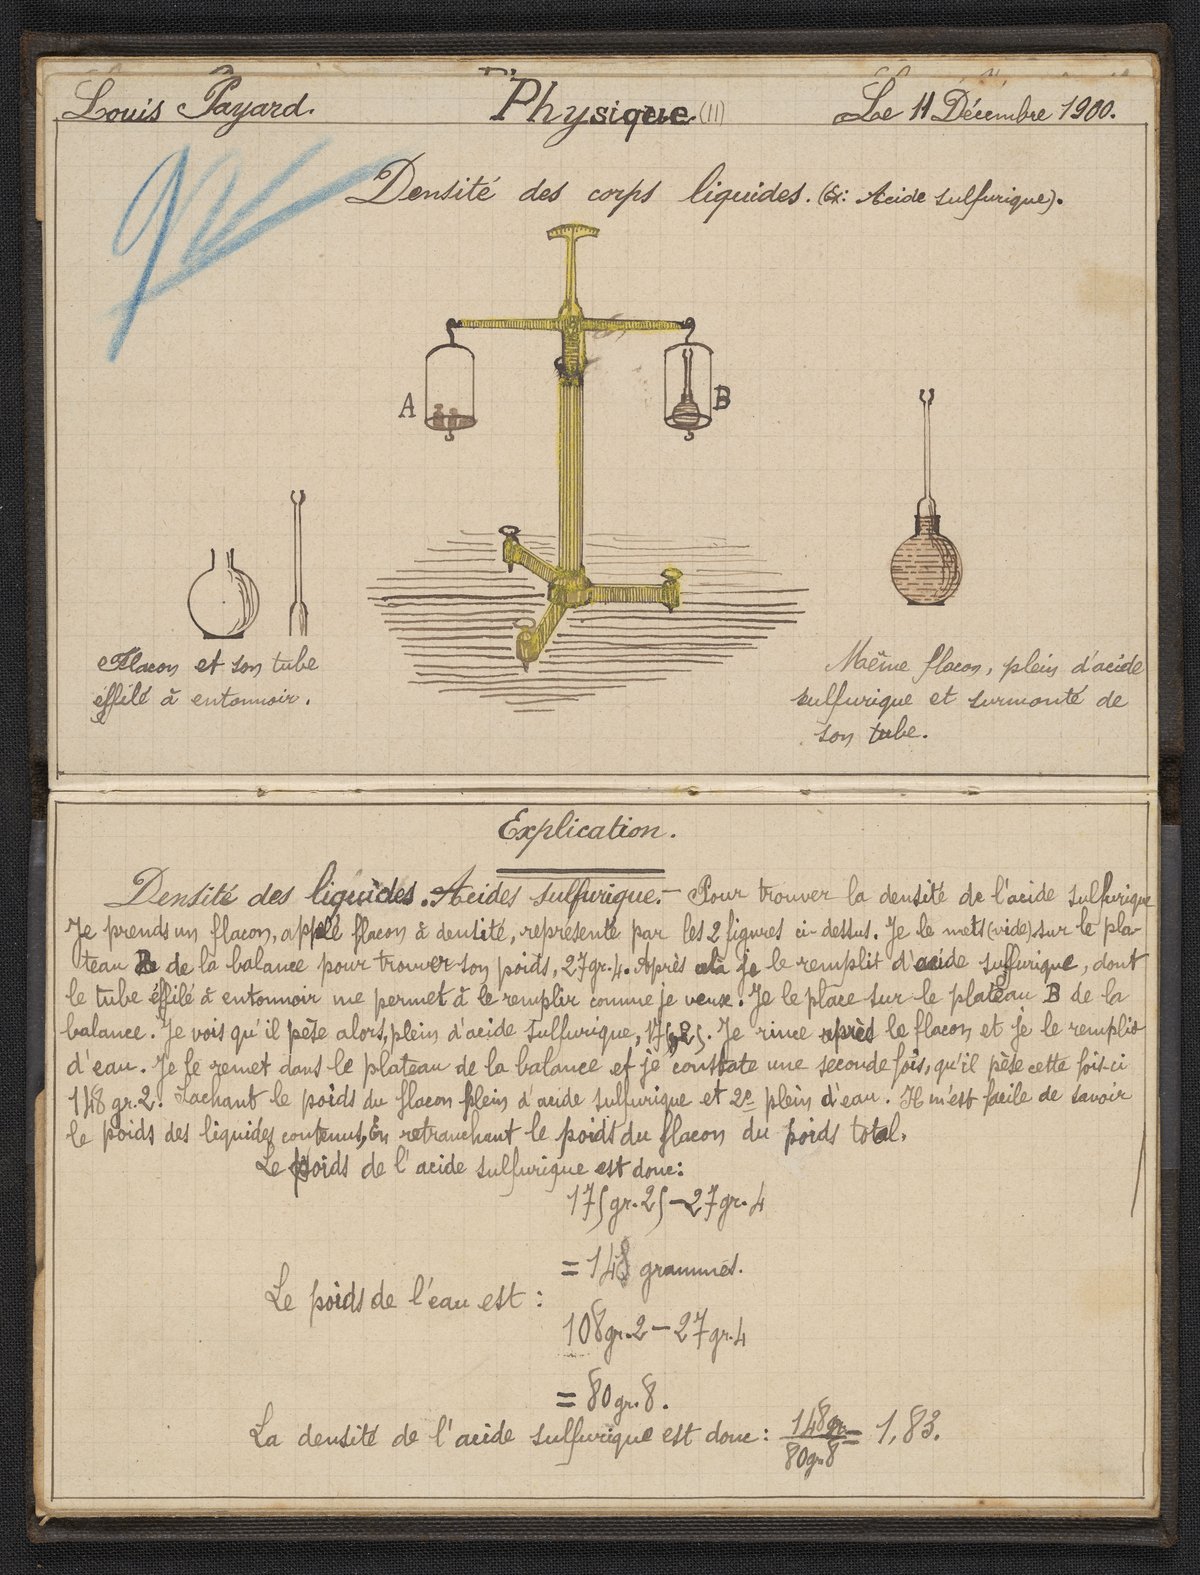 Louis Payard.
Physique. (11)
Le 11 Décembre 1900.
Densité des corps liquides. (Ex: Acide sulfurique).
A
B
Flacon et son tube
éffilé à entonnoir.
Même flacon, plein d'acide
sulfurique et surmonté de
son tube.
Explication.
Densité des liquides. Acides sulfurique. – Pour trouver la densité de l'acide sulfurique
Je prends un flacon, appelé flacon à densité, représenté par les 2 figures ci-dessus. Je le mets (vide) sur le pla-
teau B de la balance pour trouver son poids, 27gr.4. Après cela je le remplit d'acide sulfurique, dont
le tube éffilé à entonnoir me permet à le remplir comme je veux. Je le place sur le plateau B de la
balance. Je vois qu'il pèse alors, plein d'acide sulfurique, 175,25. Je rince après le flacon et je le remplis
d'eau. Je le remet dans le plateau de la balance et je constate une seconde fois, qu'il pèse cette fois-ci
148 gr.2. Sachant le poids du flacon plein d'acide sulfurique et 2e plein d'eau. Il m'est facile de savoir
le poids des liquides contenus, En retranchant le poids du flacon du poids total.
Le poids de l'acide sulfurique est donc:
175gr.25–27gr.4
= 148 grammes.
Le poids de l'eau est :
108gr.2–27gr.4
= 80gr.8.
La densité de l'acide sulfurique est donc: 148gr / 80gr8 = 1,83.